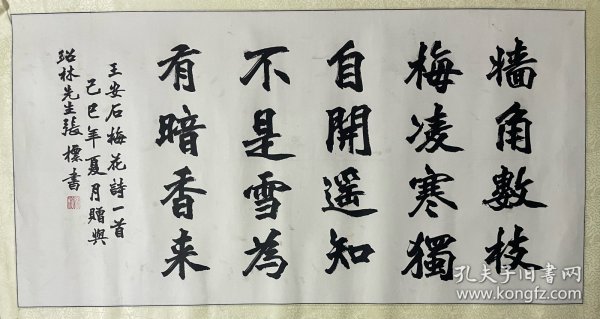 墙角數枝
梅凌寒獨
自開遥知
不是雪為
有暗香来
王安石梅花詩一首
己巳年夏月贈與
紹林先生張標書
孔夫子旧书网
www.kongfz.com